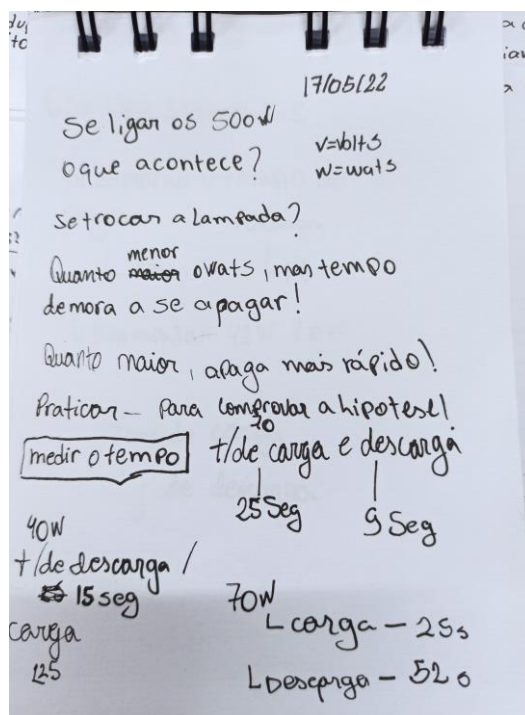 17/05/22
Se ligar os 500W
o que acontece?
V=volts
W=wats
Se trocar a Lampada?
Quanto menor o wats, mas tempo
demora a se apagar!
Quanto maior, apaga mais rápido!
Praticar - Para comprovar a hipotese!
70
medir o tempo t/de carga e descarga
25 Seg 9 Seg
40W
t/de descarga /
15 seg
carga
125
70W
carga - 25s
Descarga - 52